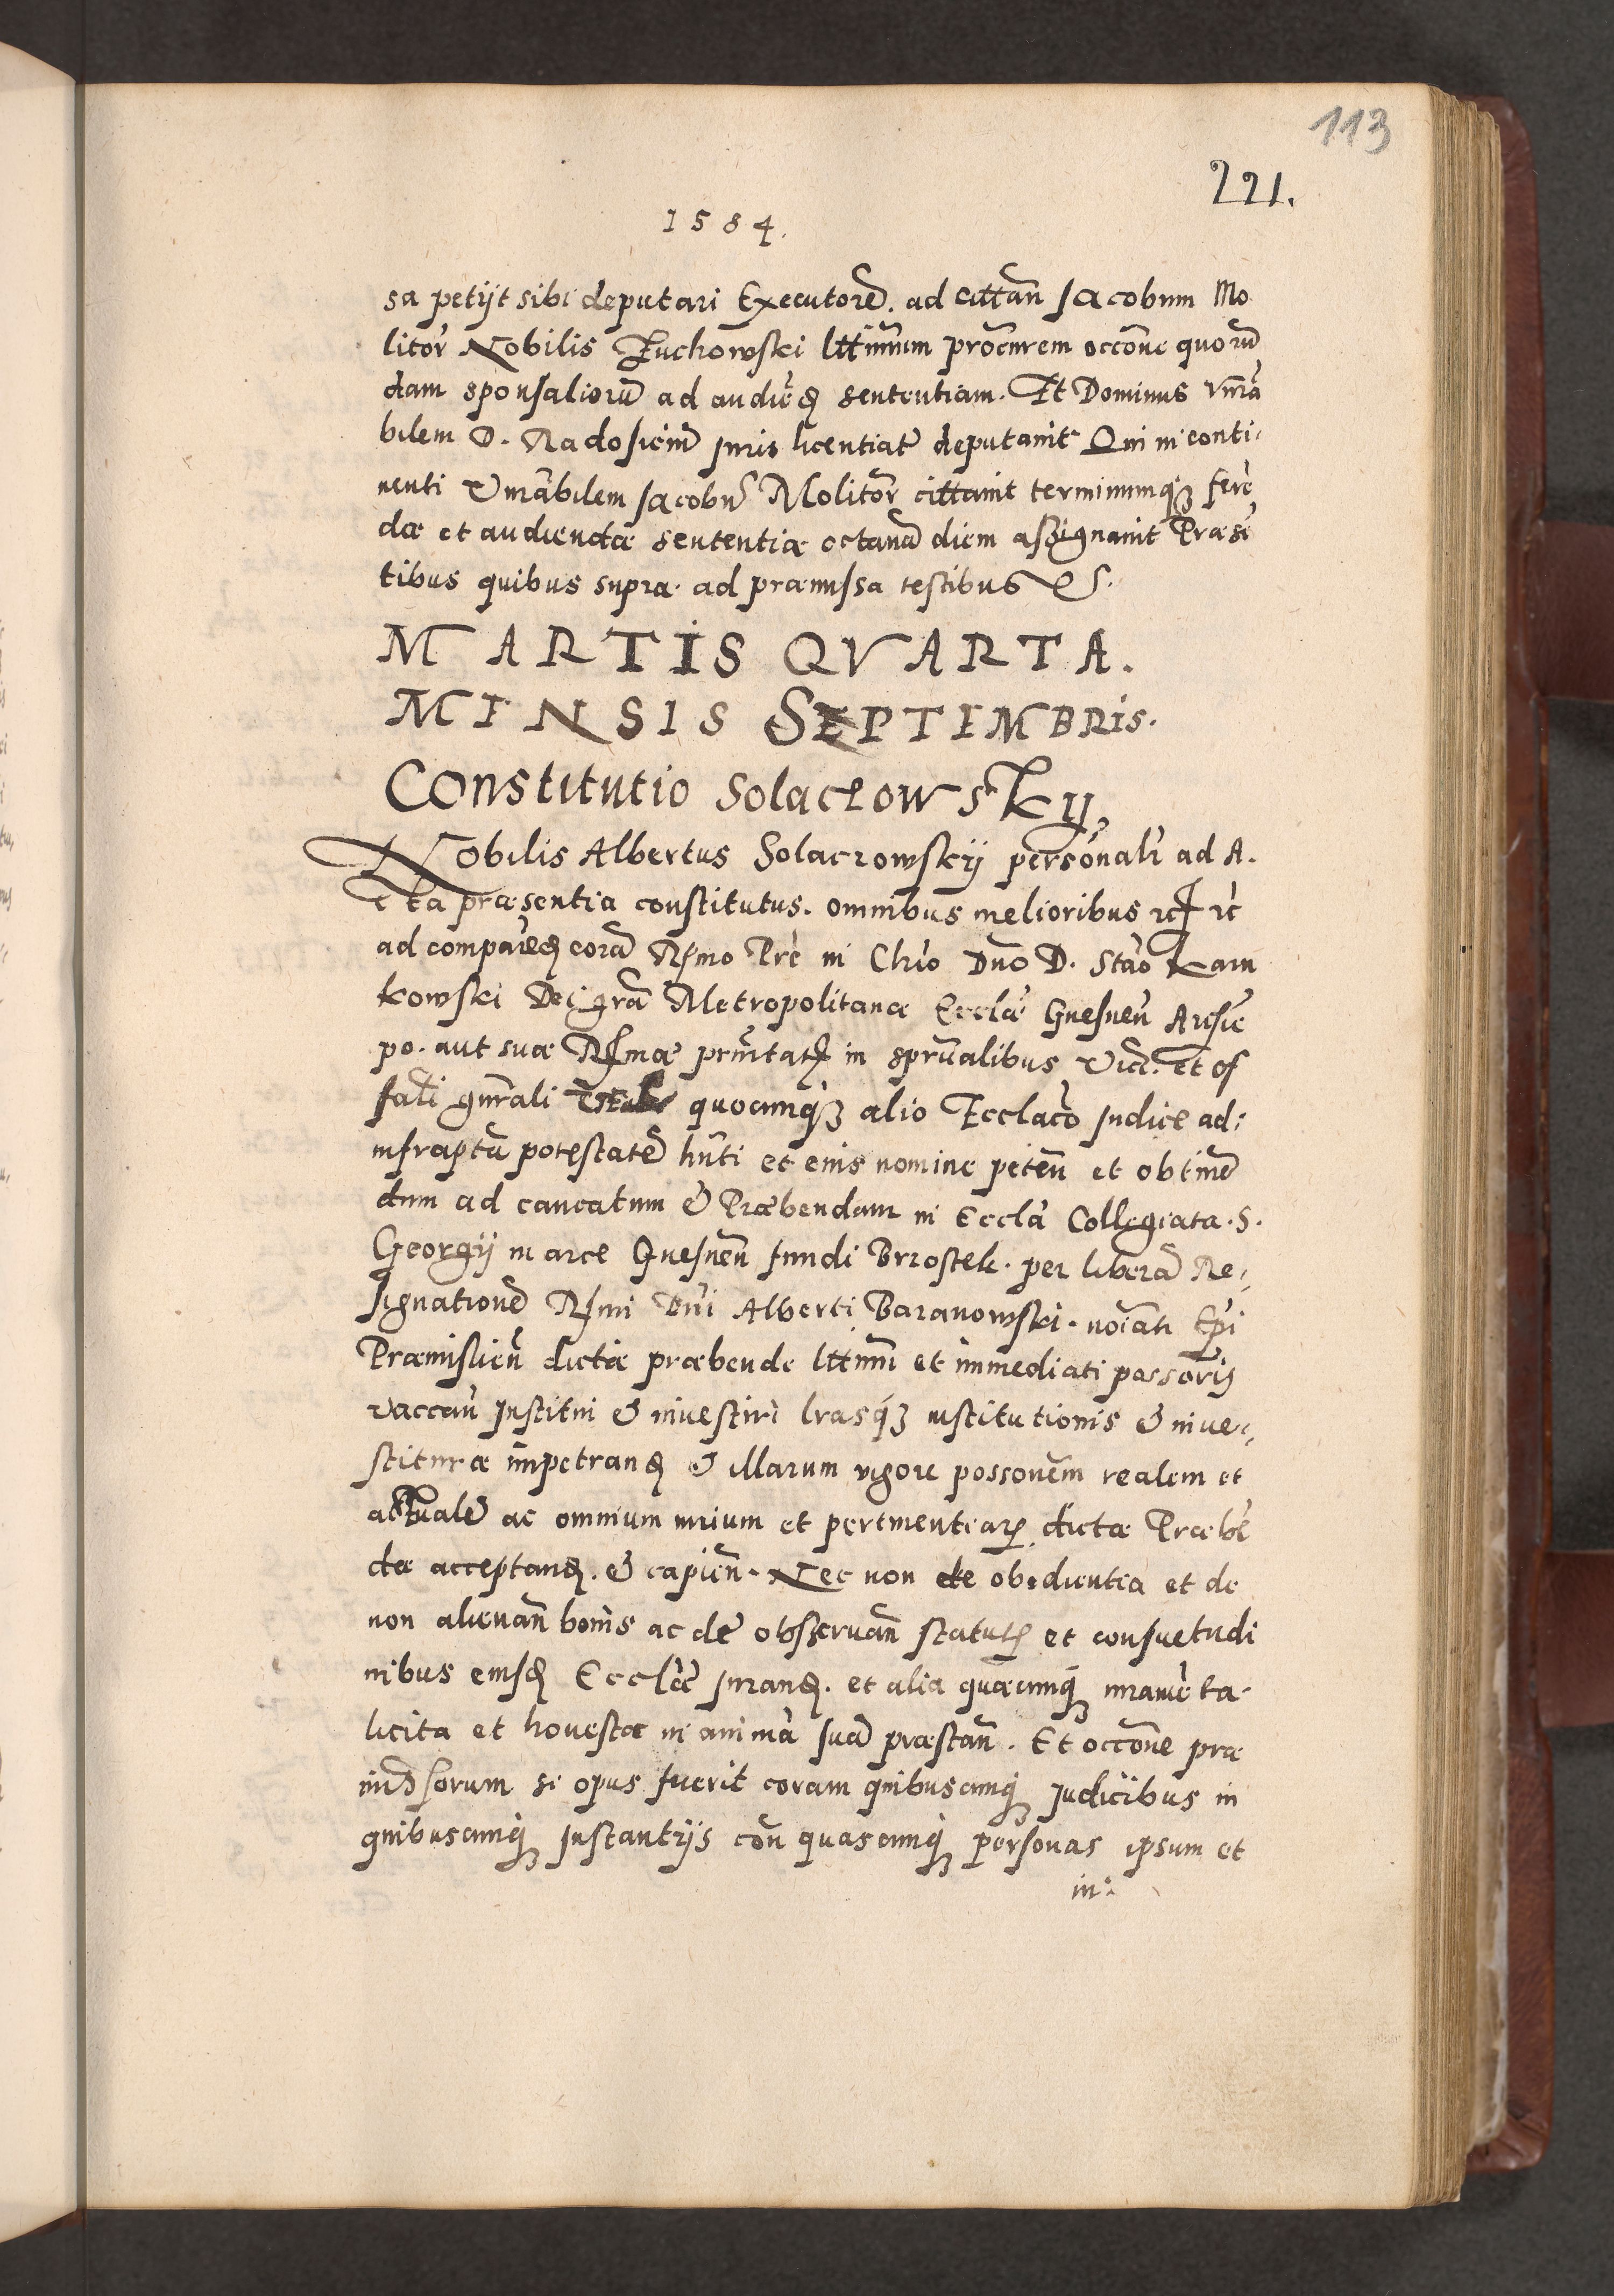 113
221.
1584.
sa petijt sibi deputari Executorē. ad cittan̄ Jacobum Mo
litor̄ Nobilis Zuchowski lttimum procurem occōne quorū
dam sponsaliorū ad audien̄d sententiam. Et Dominus vn̄ra
bilem D. Radosicim Juris licentiatū deputauit Qui in conti
nenti Vn̄rabilem Jacobū Molitor̄ cittauit terminumq3 ferē
dæ et audiendæ sententiæ octauā diem assignauit Præsē
tibus quibus supra ad præmissa testibus
MARTIS QVARTA.
MENSIS SEPTEMBRIS.
Constitutio Solaczowskij,
Nobilis Albertus Solaczowskij personalr̄ ad A.
cta præsentia constitutus. omnibus melioribus
ad comparēd corā Rs̄mo Prē in Chrō Dnō D. Stāo Karn
kowski Dei grā Metropolitanæ Ecclæ Gnesnen̄ Archie
po. aut suæ Rs̄mæ prn̄itatis in sprūalibus vic̄. et of
fali gn̄rali quocunq3 alio Ecclāco Judice ad:
infraptā potestatē hn̄ti et eius nomine peten̄ et obtinē
dum ad canonatum & Præbendam in Ecclā Collegiata. S.
Georgij in arce Gnesnen̄ fundi Brzostek. per liberā Re,
signationē Rs̄mi Dn̄i Alberti Baranowski. noīati Ep̄i
Præmislien̄ dictæ præbende lttimi et immediati possōris
vaccan̄ Institui & inuestiri lrasq3 institutionis & inue,
stituræ impetrand & illarum vigore possonēm realem et
actualē ac omnium iurium et pertinentiar dictæ Præbē
dæ acceptand. & capien̄. Nec non de obedientia et de
non alienan̄ bonis ac de obseruan̄ statut et consuetudi
nibus eiusd Ecclæ Jurand. et alia quæcunq3 iuramēta.
licita et honesta in animā suā præstan̄. Et occōne præ
missorum si opus fuerit coram quibuscunq3 Judicibus in
quibuscunq3 Instantijs cōn quascunq3 personas ipsum et
in: